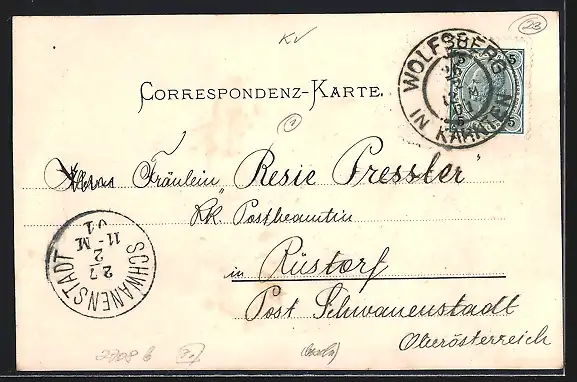 KV
23
WOLFSBERG
IN KÄRNTEN
5 5
5 5
CORRESPONDENZ-KARTE.
Fräulein „Resie Pressler"
kk. Postbeamtin
in Rüstorf
Post Schwanenstadt
Oberösterreich
SCHWANENSTADT
27
2
11-M
01
2708 b